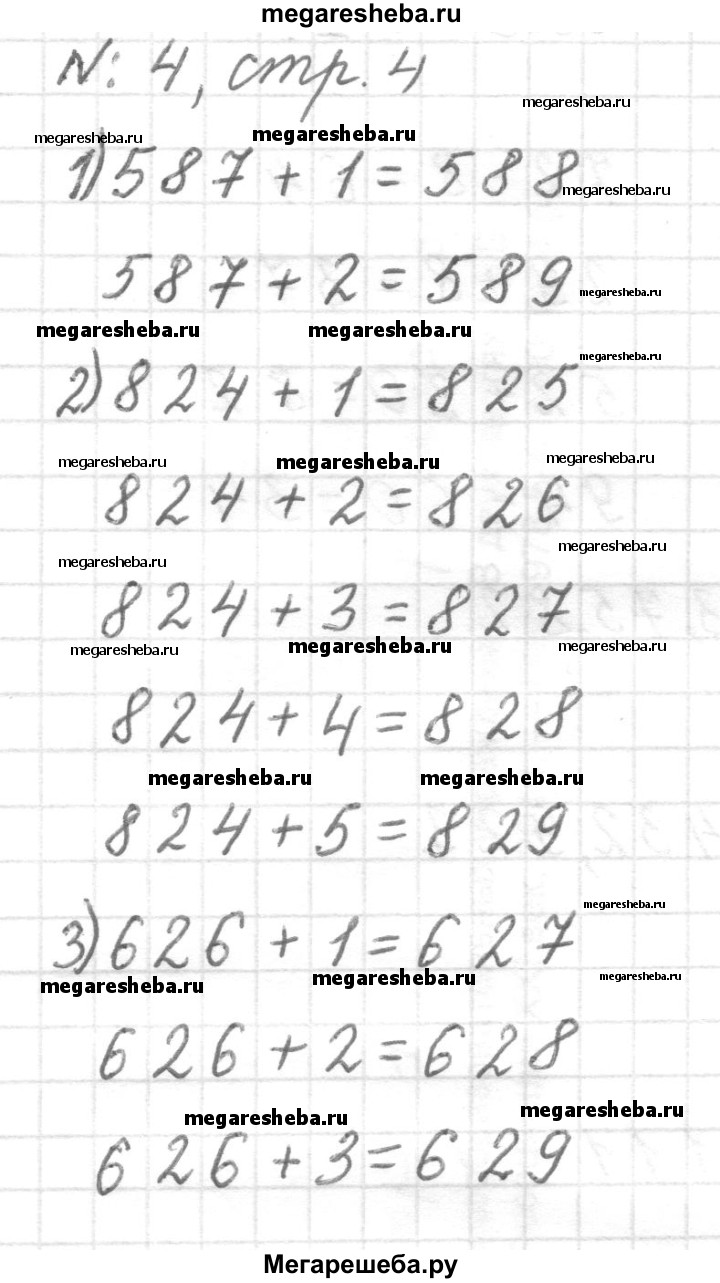 megaresheba.ru
№: 4, стр. 4
megaresheba.ru
megaresheba.ru megaresheba.ru
1) 587 + 1 = 588
megaresheba.ru
587 + 2 = 589
megaresheba.ru
megaresheba.ru megaresheba.ru
megaresheba.ru
2) 824 + 1 = 825
megaresheba.ru megaresheba.ru megaresheba.ru
824 + 2 = 826
megaresheba.ru
megaresheba.ru
824 + 3 = 827
megaresheba.ru megaresheba.ru megaresheba.ru
824 + 4 = 828
megaresheba.ru megaresheba.ru
824 + 5 = 829
megaresheba.ru
3) 626 + 1 = 627
megaresheba.ru megaresheba.ru megaresheba.ru
626 + 2 = 628
megaresheba.ru megaresheba.ru
626 + 3 = 629
Мегарешеба.ру